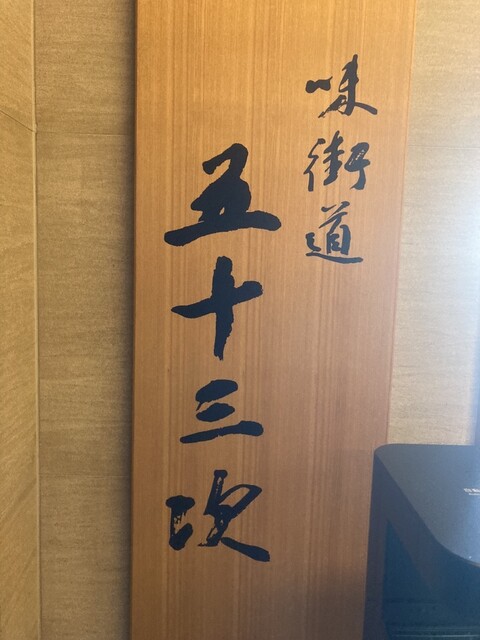 味街道
五十三次